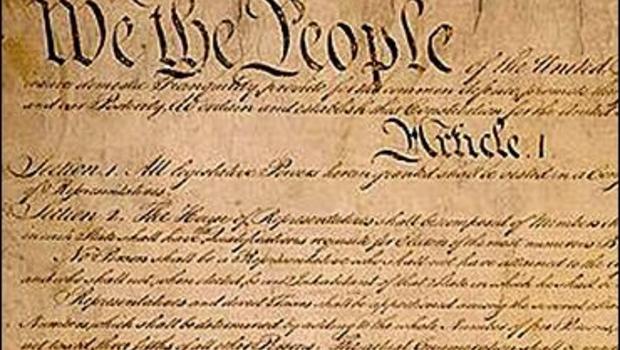 We the People of the United
insure domestic Tranquility, provide for the common defence, promote the
and our Posterity, do ordain and establish this Constitution for the United
Article. I
Section. 1. All legislative Powers herein granted shall be vested in a Con
of Representatives.
Section. 2. The House of Representatives shall be composed of Members
in each State shall have Qualifications requisite for Electors of the most numerous B
No Person shall be a Representative who shall not have attained to the
and who shall not, when elected, be an Inhabitant of that State in which he shall
Representatives and direct Taxes shall be apportioned among the several
Numbers, which shall be determined by adding to the whole Number of free Persons,
not taxed, three fifths of all other Persons. The actual Enumeration shall